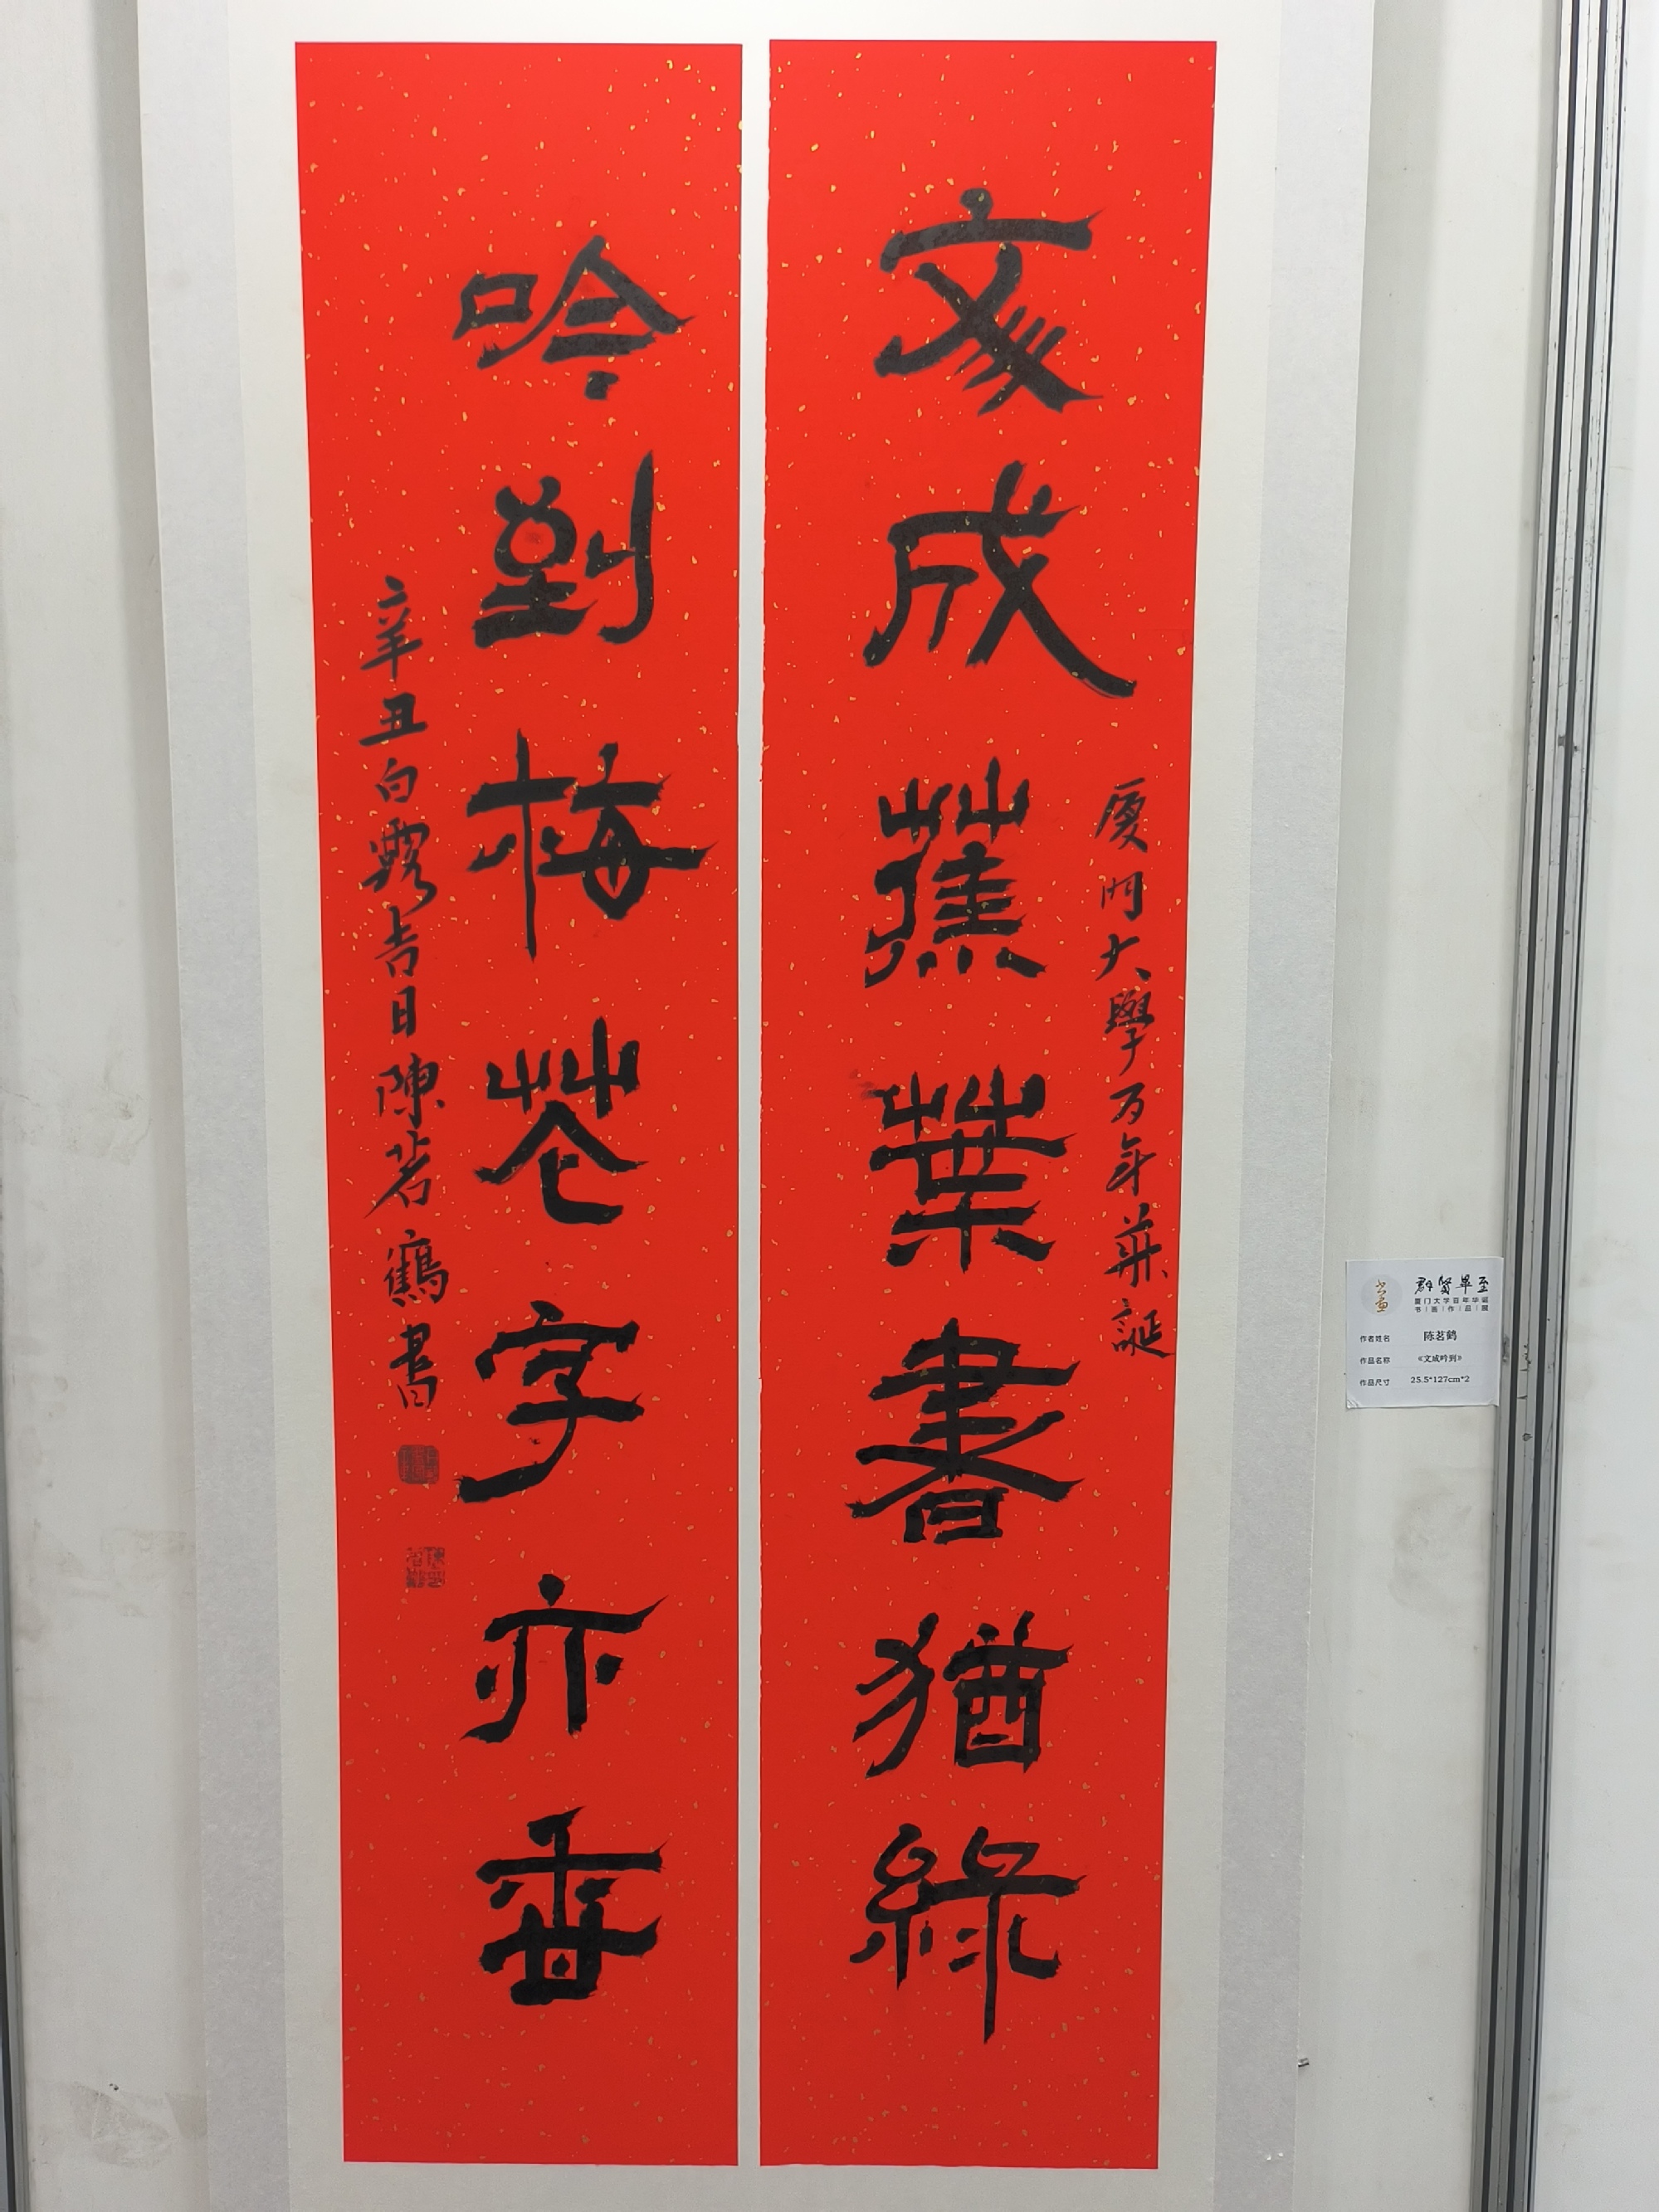 文成蕉葉書猶綠
厦門大學万年華誕
吟到梅花字亦香
辛丑白露吉日陳茗鶴書
群贤毕至
厦门大学百年华诞
书画作品展
作者姓名 陈茗鹤
作品名称 《文成吟到》
作品尺寸 25.5*127cm*2